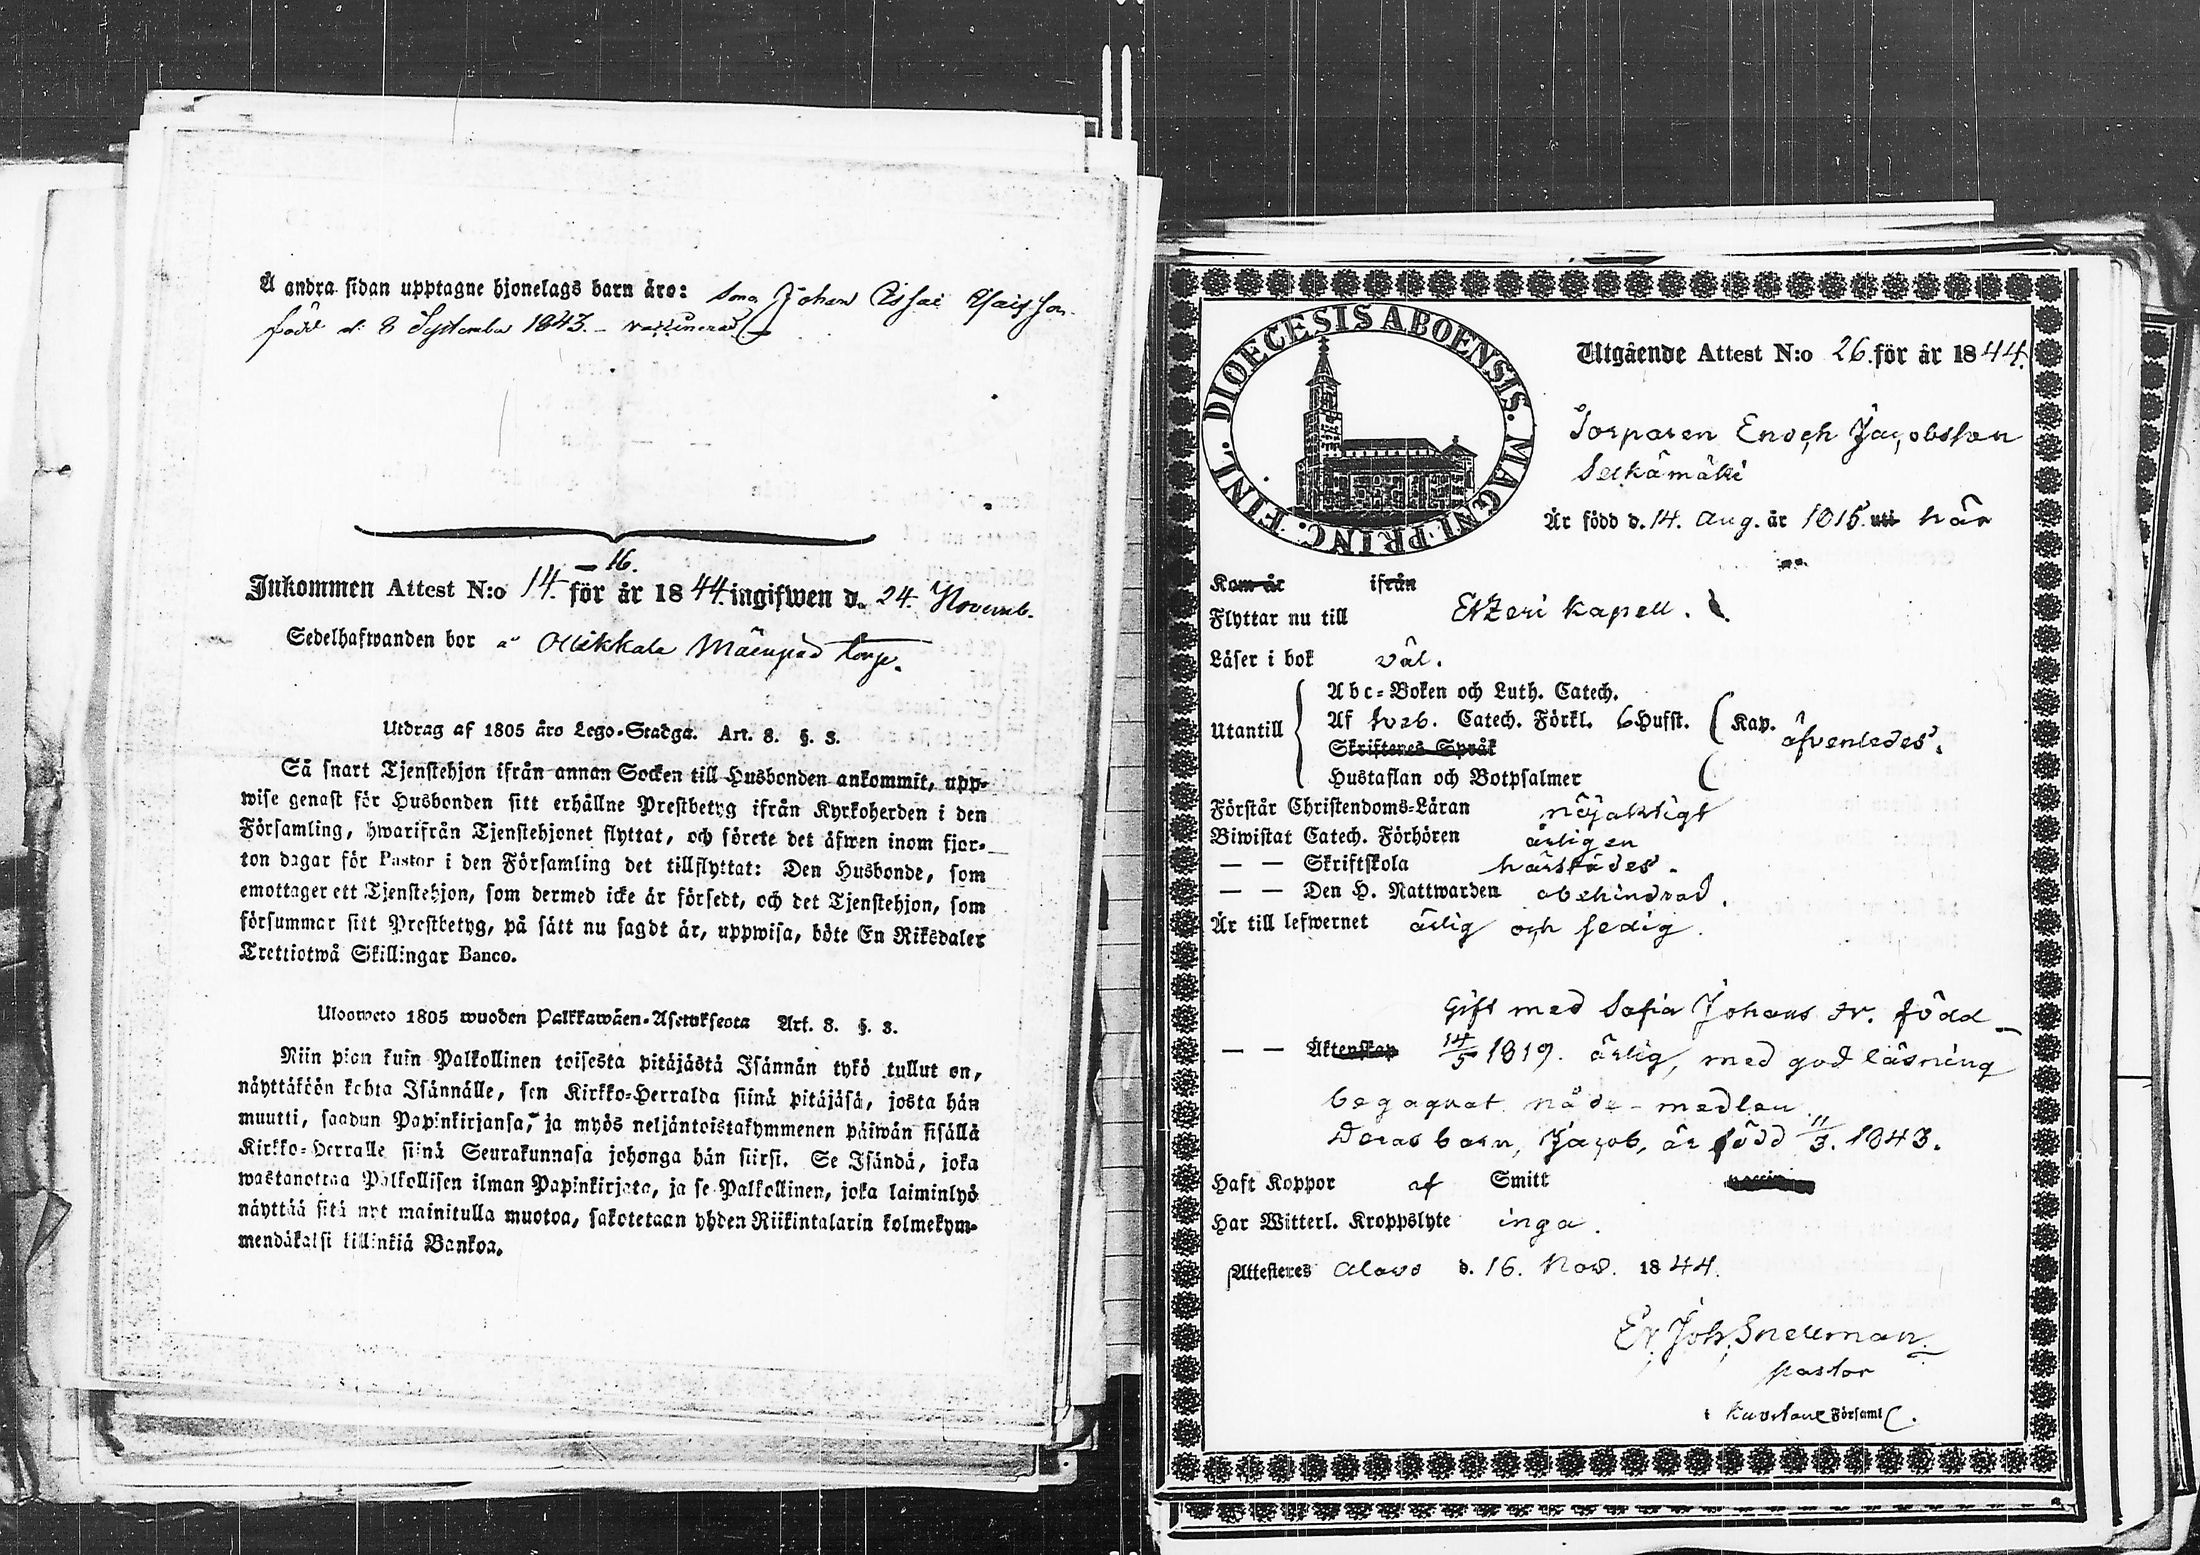 Å andra sidan upptagne hjonelags barn äro: Son Johan
född d. 8 September 1843. – vaccinerad
16.
Inkommen Attest N:o 14. för år 1844. ingifwen d. 24. Novemb.
Sedelhafwanden bor å Ollikkala Mäenpää torp.
Utdrag af 1805 års Lego-Stadga. Art. 8. §. 3.
Så snart Tjenstehjon ifrån annan Socken till Husbonden ankommit, upp-
wise genast för Husbonden sitt erhållne Prestbetyg ifrån Kyrkoherden i den
Församling, hwarifrån Tjenstehjonet flyttat, och förete det äfwen inom fjor-
ton dagar för Pastor i den Församling det tillflyttat: Den Husbonde, som
emottager ett Tjenstehjon, som dermed icke är försedt, och det Tjenstehjon, som
försummar sitt Prestbetyg, på sätt nu sagdt är, uppwisa, böte En Riksdaler
Trettiotwå Skillingar Banco.
Uloosweto 1805 wuoden Palkkawäen-Asetuksesta Art. 8. §. 3.
Niin pian kuin Palkollinen toisesta pitäjästä Isännän tykö tullut on,
näyttäköön kohta Isännälle, sen Kirkko-Herralda siinä pitäjäsä, josta hän
muutti, saadun Papinkirjansa, ja myös neljäntoistakymmenen päiwän sisällä
Kirkko-Herralle siinä Seurakunnasa johonga hän siirsi. Se Isändä, joka
wastanottaa Palkollisen ilman Papinkirjata, ja se Palkollinen, joka laiminlyö
näyttää sitä nyt mainitulla muotoa, sakotetaan yhden Riikintalarin kolmekym-
mendäkaksi killinkiä Bankoa.
DIOECESIS ABOENSIS. MAGNI. PRINC. FINL.
Utgående Attest N:o 26. för år 1844.
Torparen Enoch Jacobsson
Selkämäki
Är född d. 14. Aug. år 1815. uti här
Kom år ifrån
Flyttar nu till Etzeri kapell.
Läser i bok väl.
Utantill Abc-Boken och Luth. Catech.
Af Sveb. Catech. Förkl. 6 Hufst. Kap. äfvenledes.
Skriftenes Språk
Hustaflan och Botpsalmer
Förstår Christendoms-Läran nöjaktigt
Biwistat Catech. Förhören årligen
— — Skriftskola härstädes.
— — Den H. Nattwarden obehindrad.
Är till lefwernet ärlig och sedig.
Gift med Sofia Johans dr. född
— — Äktenskap 14/5 1819. ärlig, med god läsning
begagnat nåde-medlen.
Deras barn, Jacob, är född 11/3. 1843.
Haft Koppor af Smitt
Har Witterl. Kroppslyte inga.
Attesteres Alavo d. 16. Nov. 1844.
Er. Joh. Snellman
pastor
i Kuortane Församl.